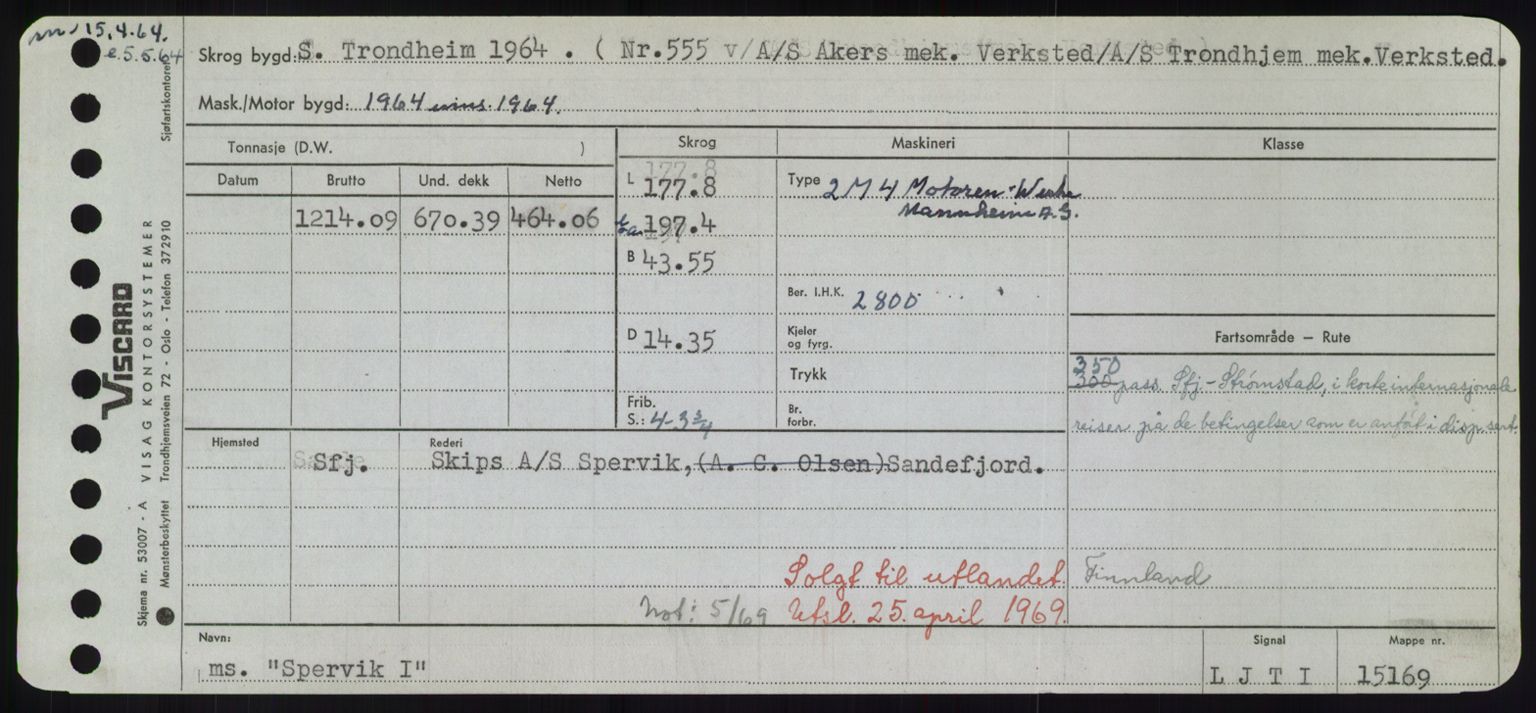 15.4.64.
e.5.5.64
Skrog bygd: S. Trondheim 1964 . ( Nr.555 v/A/S Akers mek. Verksted/A/S Trondhjem mek.Verksted.
Mask./Motor bygd: 1964 1964.
Tonnasje (D.W. )
Skrog
Maskineri
Klasse
Datum
Brutto
Und. dekk
Netto
L 177.8
Type 2 M 4 Motoren-Werke
Mannheim A.G.
1214.09
670.39
464.06
197.4
B 43.55
Ber. I.H.K. 2800
D 14.35
Kjeler
og fyrg.
Fartsområde — Rute
Trykk
350
300 pass. Sfj-Strömstad, i korte internasjonale
Frib.
S.: 4-3 3/4
Br.
forbr.
reiser på de betingelser som er anført i disp. sert.
Hjemsted
Rederi
Sfj.
Skips A/S Spervik,(A. C. Olsen)Sandefjord.
Solgt til utlandet Finnland
Not: 5/69 Utsl. 25. april 1969.
Navn:
Signal
Mappe nr.
ms. "Spervik I"
L J T I
15169
VISCARD
Skjema nr. 53007 - A VISAG KONTORSYSTEMER
Mønsterbeskyttet Trondhjemsveien 72 - Oslo - Telefon 372910
Sjøfartskontoret